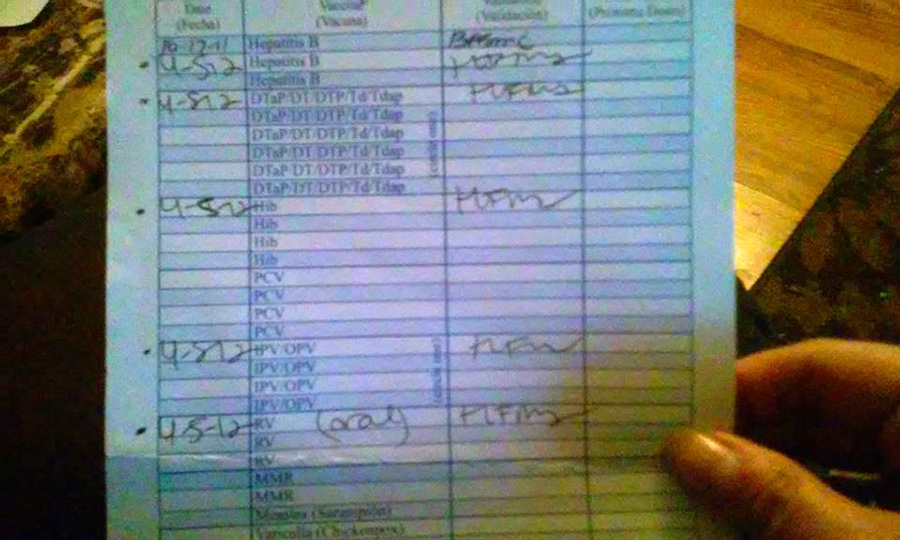 Date Vaccine Validation
(Fecha) (Vacuna) (Validación) (Próxima Dosis)
10-17-11 Hepatitis B
4-512 Hepatitis B
Hepatitis B
4-512 DTaP/DT/DTP/Td/Tdap
DTaP/DT/DTP/Td/Tdap
DTaP/DT/DTP/Td/Tdap
DTaP/DT/DTP/Td/Tdap
DTaP/DT/DTP/Td/Tdap
DTaP/DT/DTP/Td/Tdap
4-512 Hib
Hib
Hib
Hib
PCV
PCV
PCV
PCV
4-512 IPV/OPV
IPV/OPV
IPV/OPV
IPV/OPV
4-5-12 RV (oral)
RV
RV
MMR
MMR
Measles (Sarampión)
Varicella (Chickenpox)